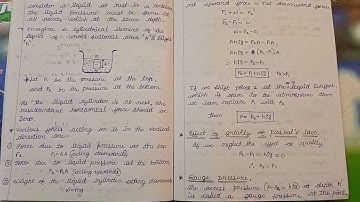 consider a liquid at rest in a vessel
the liquid pressure must be same at
all points which at the same depth.
→ Imagine a cylindrical element of the
liquid of cross sectional area "A" & height
"h"
→ Let P₁ be the pressure at the top,
and P₂ be the pressure at the bottom.
→ As the liquid cylinder is at rest, the
resultant horizontal force should be
zero.
* Various forces acting on it in the vertical
direction are:-
① Force due to liquid pressure at the top
F₁ = P₁A (acting downwards)
② Force due to liquid pressure at the bottom,
F₂ = P₂A (acting upwards)
③ Weight of the liquid cylinder acting downwards
W = mg
net upward force = net downward force
F₂ - F₁ = W
W = F₂ - F₁
Ahρg = P₂A - P₁A
Ahρg = A(P₂ - P₁)
hρg = P₂ - P₁
P₂ = P₁ + hρg
P₂ > P₁
* If we shift point 1 to the liquid surface,
which is open to the atmosphere then
we can replace P₁ with
then
* Effect of gravity on Pascal's law.
As we neglect the effect of gravity
P₂ - P₁ = hρg = 0
∴ P₂ = P₁
* Gauge pressure.
The excess pressure at depth 'h'
is called gauge pressure at the point.